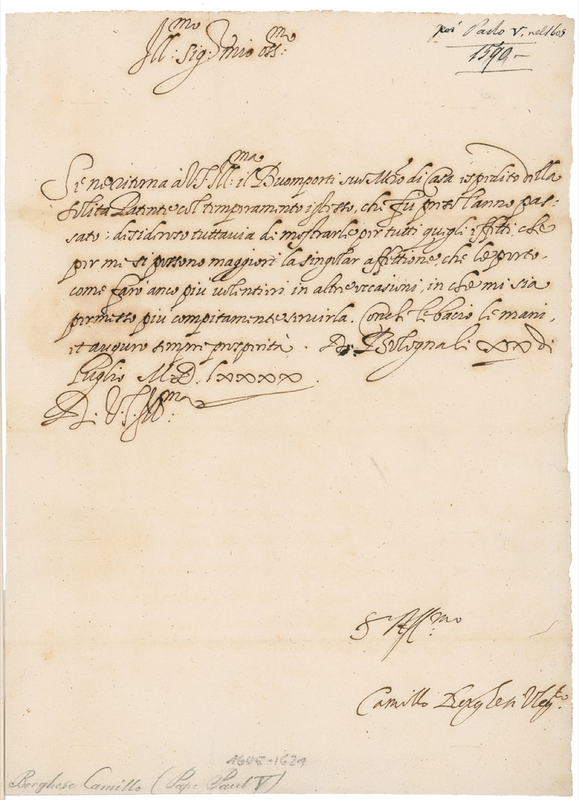 poi Paolo V. nel 1605
1590 –
Ill:mo Sig: mio oss:mo
Se ne ritorna à V.S. Ill:ma il Buomporti suo Mro di Casa ispedito della
solita Patente col temperamento istesso, che fù preso l'anno pas:
sato: desideroso tuttavia di mostrarle per tutti quegli effetti che
per me si possono maggiori la singolar affettione che le porto,
come farò anco più volentieri in altre occasioni, in che mi sia
permesso più compitamente servirla. Con che le bacio le mani,
et auguro sempre prosperità. Di Bologna li xx di
Luglio M.D.lxxxx.
Di V.S. Ill:ma
Aff:mo
Camillo Borghese Vleg:to
1605-1621
Borghese Camillo (Pape Paul V)